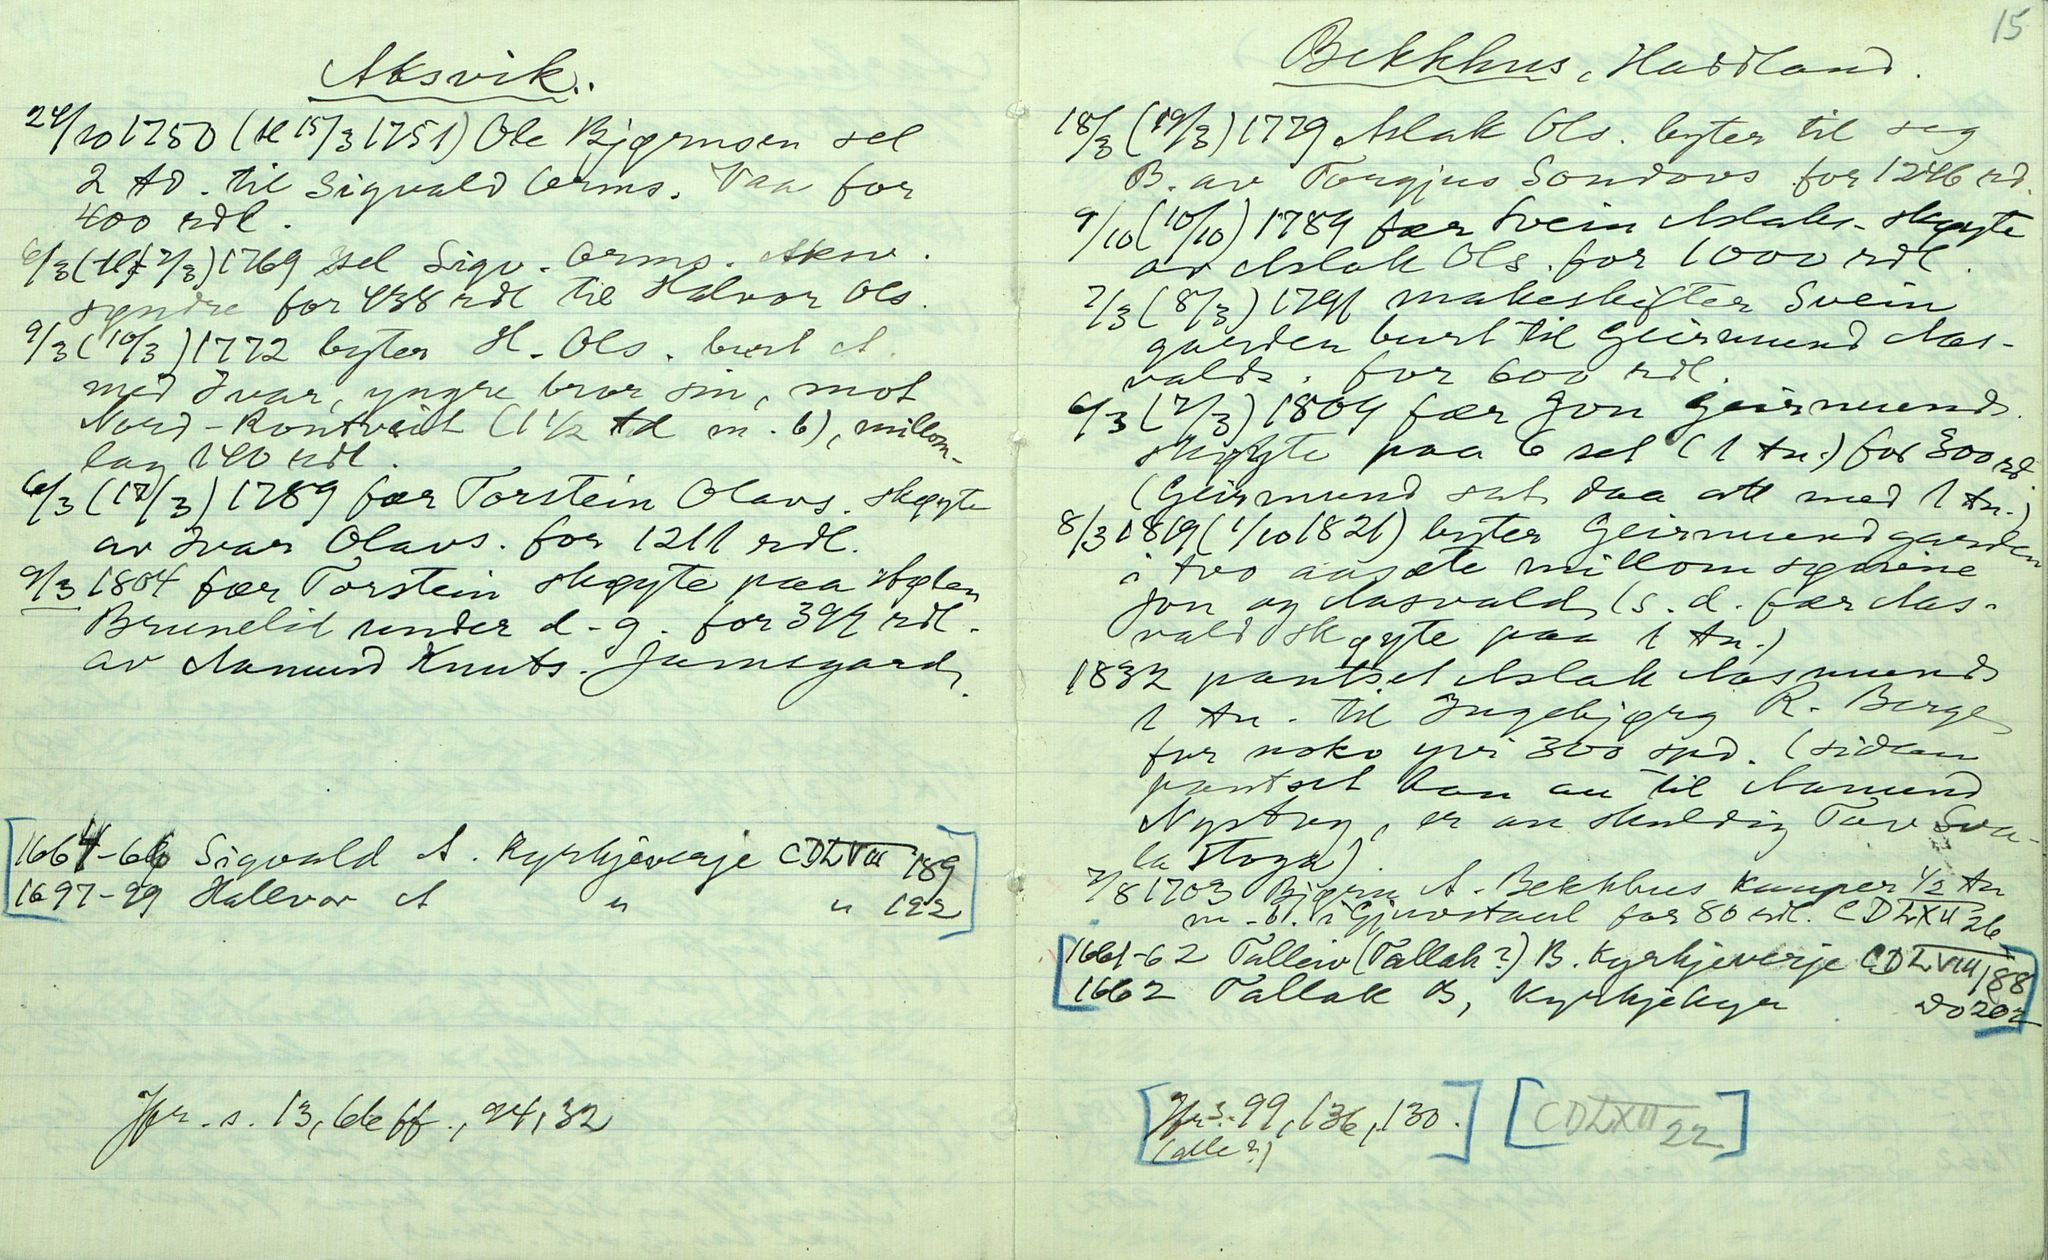 Aksvik.
24/10 1750 (tl 15/3 1751) Ole Bjørnsen sel
2 td. til Sigvald Orms. Vaa for
400 rdl.
6/3 (tl 7/3) 1769 sel Sigv. Orms. Aksv.
syndre for 438 rdl til Halvor Ols.
9/3 (10/3) 1772 byter H. Ols. burt A.
med Ivar, yngre bror sin, mot
Nord-Rontveit (1 1/2 td m. b), millom-
lag 140 rdl.
6/3 (17/3) 1789 fær Torstein Olavs. skøyte
av Ivar Olavs. for 1211 rdl.
9/3 1804 fær Torstein skøyte paa støden
Brunelid under d. g. for 399 rdl.
av Aamund Knuts. Jamsgard.
[1664-66 Sigvald A. Kyrkjeverje CDLVIII 189
1697-99 Hallvor A " " 192]
Jfr. s. 13, 66 ff., 94, 32
15
Bekkhus, Haddland.
18/3 (19/3) 1779 Aslak Ols. byter til seg
B. av Torgjus Sondovs for 1246 rd.
9/10 (10/10) 1789 fær Svein Aslaks. skøyte
av Aslak Ols. for 1000 rdl.
7/3 (8/3) 1791 makeskifter Svein
garden burt til Geirmund Aas-
valds. for 600 rdl.
6/3 (7/3) 1809 fær Jon Geirmunds.
skøyte paa 6 set (1 tn.) for 300 rd.
(Geirmund sat daa att med 1 tn.)
8/3 1819 (1/10 1821) byter Geirmund garden
i tvo aasæte millom sønine
Jon og Aasvald (s. d. fær Aas-
vald skøyte paa 1 tn.)
1832 pantset Aslak Aasmunds
1 tn. til Ingebjørg R. Berge
for noko yvi 300 spd. (sidan
pantset han au til Aamund
Nystog, er au skuldig Tov Sva-
lastoga)
7/8 1703 Bjørn A. Bekkhus kauper 1/2 tn
m. b. i Gjuvstaul for 80 rdl. CDLXII 26
[1661-62 Talleiv (Tallak?) B. Kyrkjeverje CDLVIII 188
1662 Tallak B, Kyrkjekyr Do 202]
[Jfr s. 99, 136, 130.
(alle?)]
[CDLXII 22]